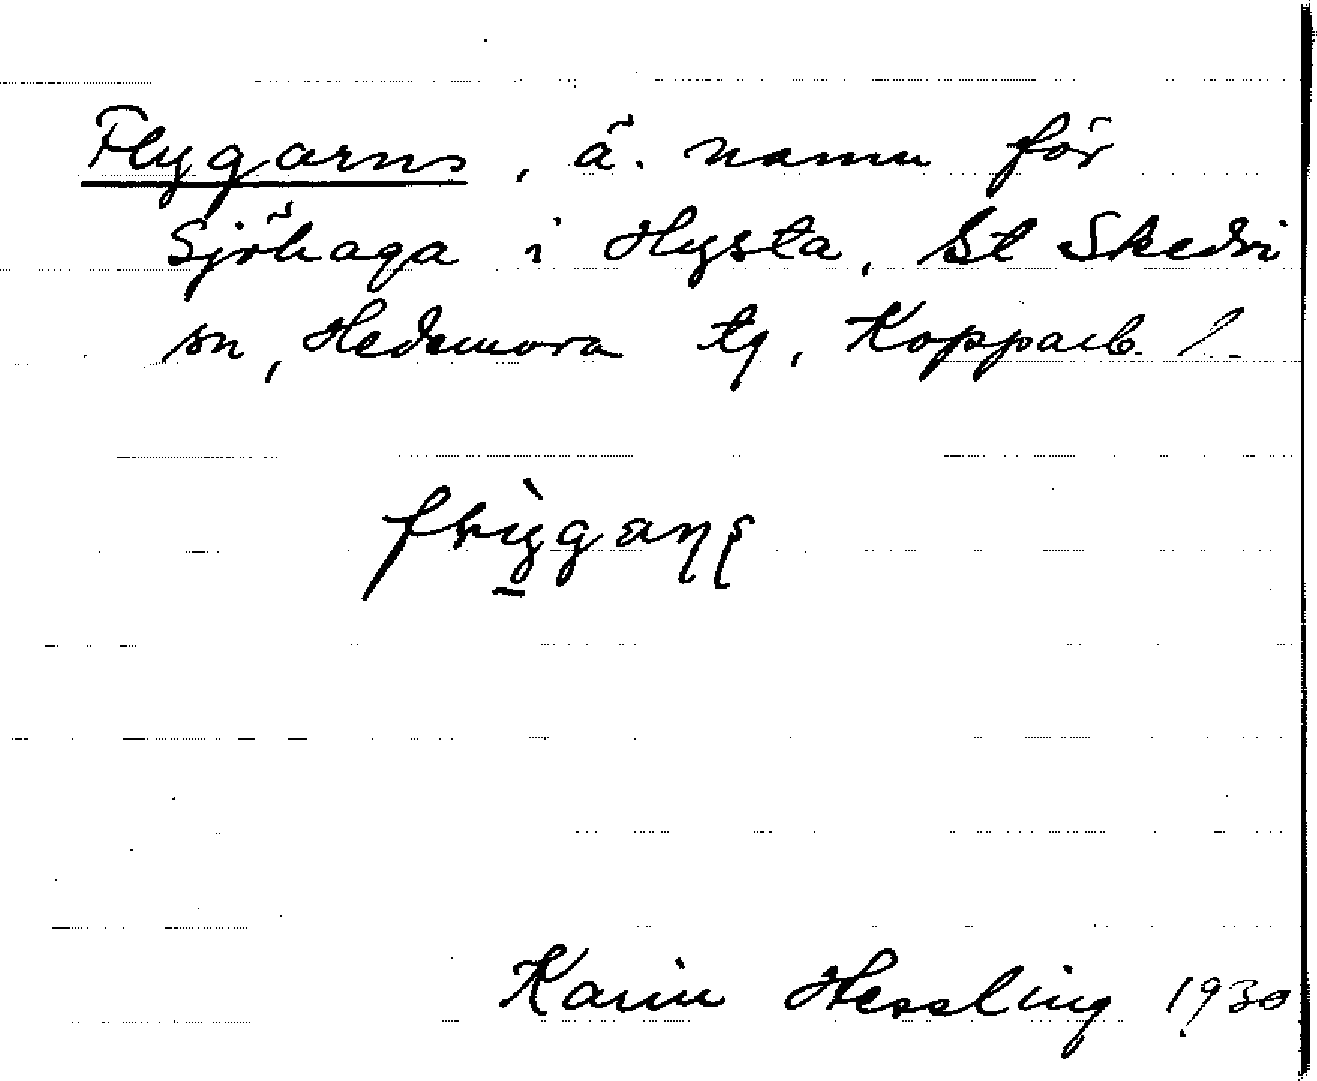 Flygarns, ä. namn för
Sjöhaga i Hysta, St Skedvi
sn, Hedemora tg, Kopparb. l.
Karin Hessling 1930